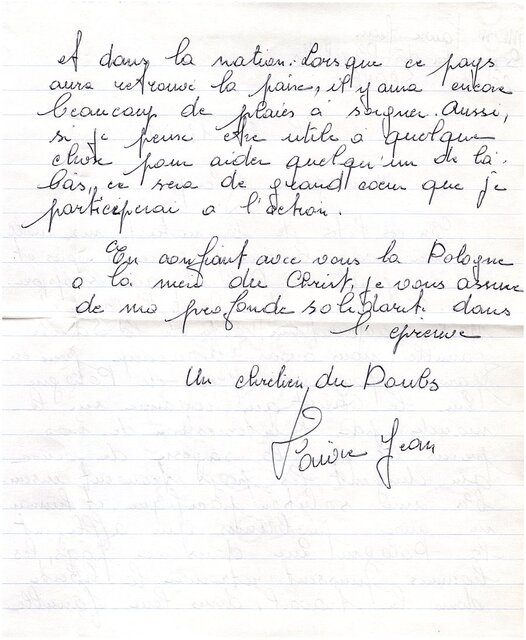 et dans la nation. Lorsque ce pays
aura retrouvé la paix, il y aura encore
beaucoup de plaies à soigner. Aussi,
si je peux être utile à quelque
chose pour aider quelqu'un de là-
bas, ce sera de grand coeur que je
participerai à l'action.
En confiant avec vous la Pologne
a la mère du Christ, je vous assure
de ma profonde solidarité dans
l'épreuve
Un chrétien du Doubs
Jean